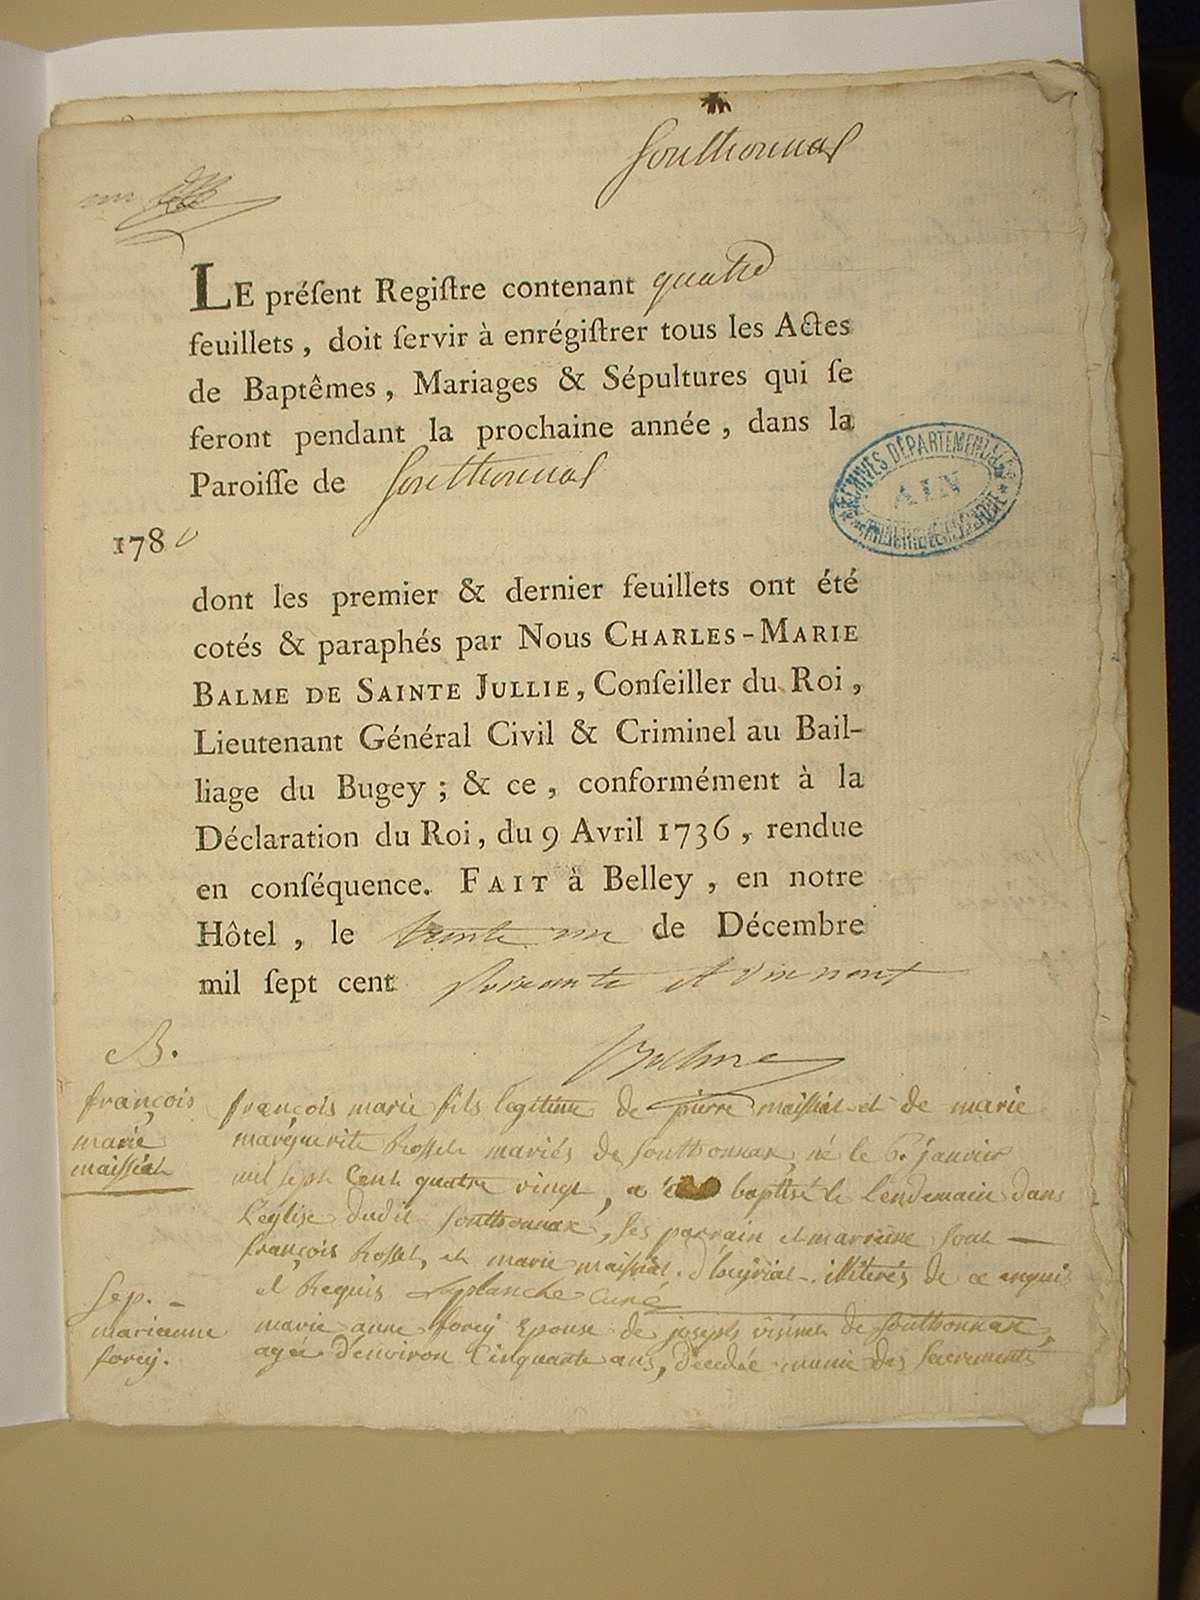 Southonnas
LE préſent Regiſtre contenant quatre
feuillets, doit ſervir à enrégiſtrer tous les Actes
de Baptêmes, Mariages & Sépultures qui ſe
feront pendant la prochaine année, dans la
Paroiſſe de Southonnas
ARCHIVES DÉPARTEMENTALES
AIN
1780
dont les premier & dernier feuillets ont été
cotés & paraphés par Nous CHARLES-MARIE
BALME DE SAINTE JULLIE, Conſeiller du Roi,
Lieutenant Général Civil & Criminel au Bail-
liage du Bugey ; & ce, conformément à la
Déclaration du Roi, du 9 Avril 1736, rendue
en conſéquence. FAIT à Belley, en notre
Hôtel, le trente un de Décembre
mil ſept cent soixante et dix neuf
Balme
B.
françois
marie
maissiat
françois marie fils legitime de pierre maissiat et de marie
marguerite Rosset mariés de Southonnax, né le 6. janvier
mil sept cent quatre vingt, a été baptisé le lendemain dans
l'église dudit Southonnax, ses parrain et marraine sont
françois Rosset, et marie maissiat illiterés de ce enquis
et Requis Laplanche Curé
Sep.
marieanne
forey.
marie anne forey Epouse de joseph de Southonnax,
agée d'environ Cinquante ans, décedée munie des Sacrements